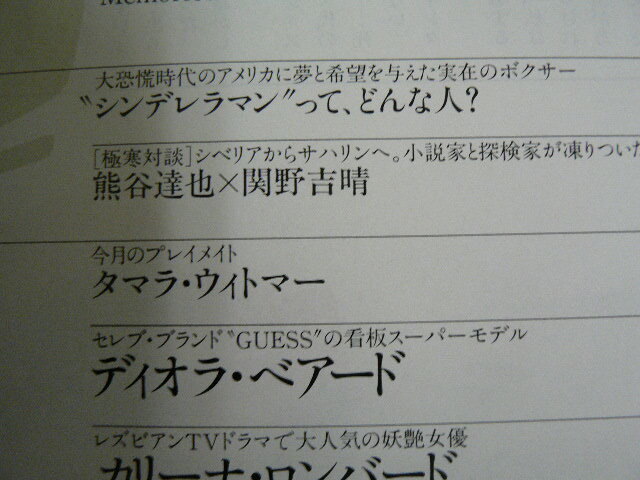 大恐慌時代のアメリカに夢と希望を与えた実在のボクサー
〝シンデレラマン〟って、どんな人?
[極寒対談]シベリアからサハリンへ。小説家と探検家が凍りついた
熊谷達也×関野吉晴
今月のプレイメイト
タマラ・ウィトマー
セレブ・ブランド〝GUESS〟の看板スーパーモデル
ディオラ・ベアード
レズビアンTVドラマで大人気の妖艶女優
カリーナ・ロンバード